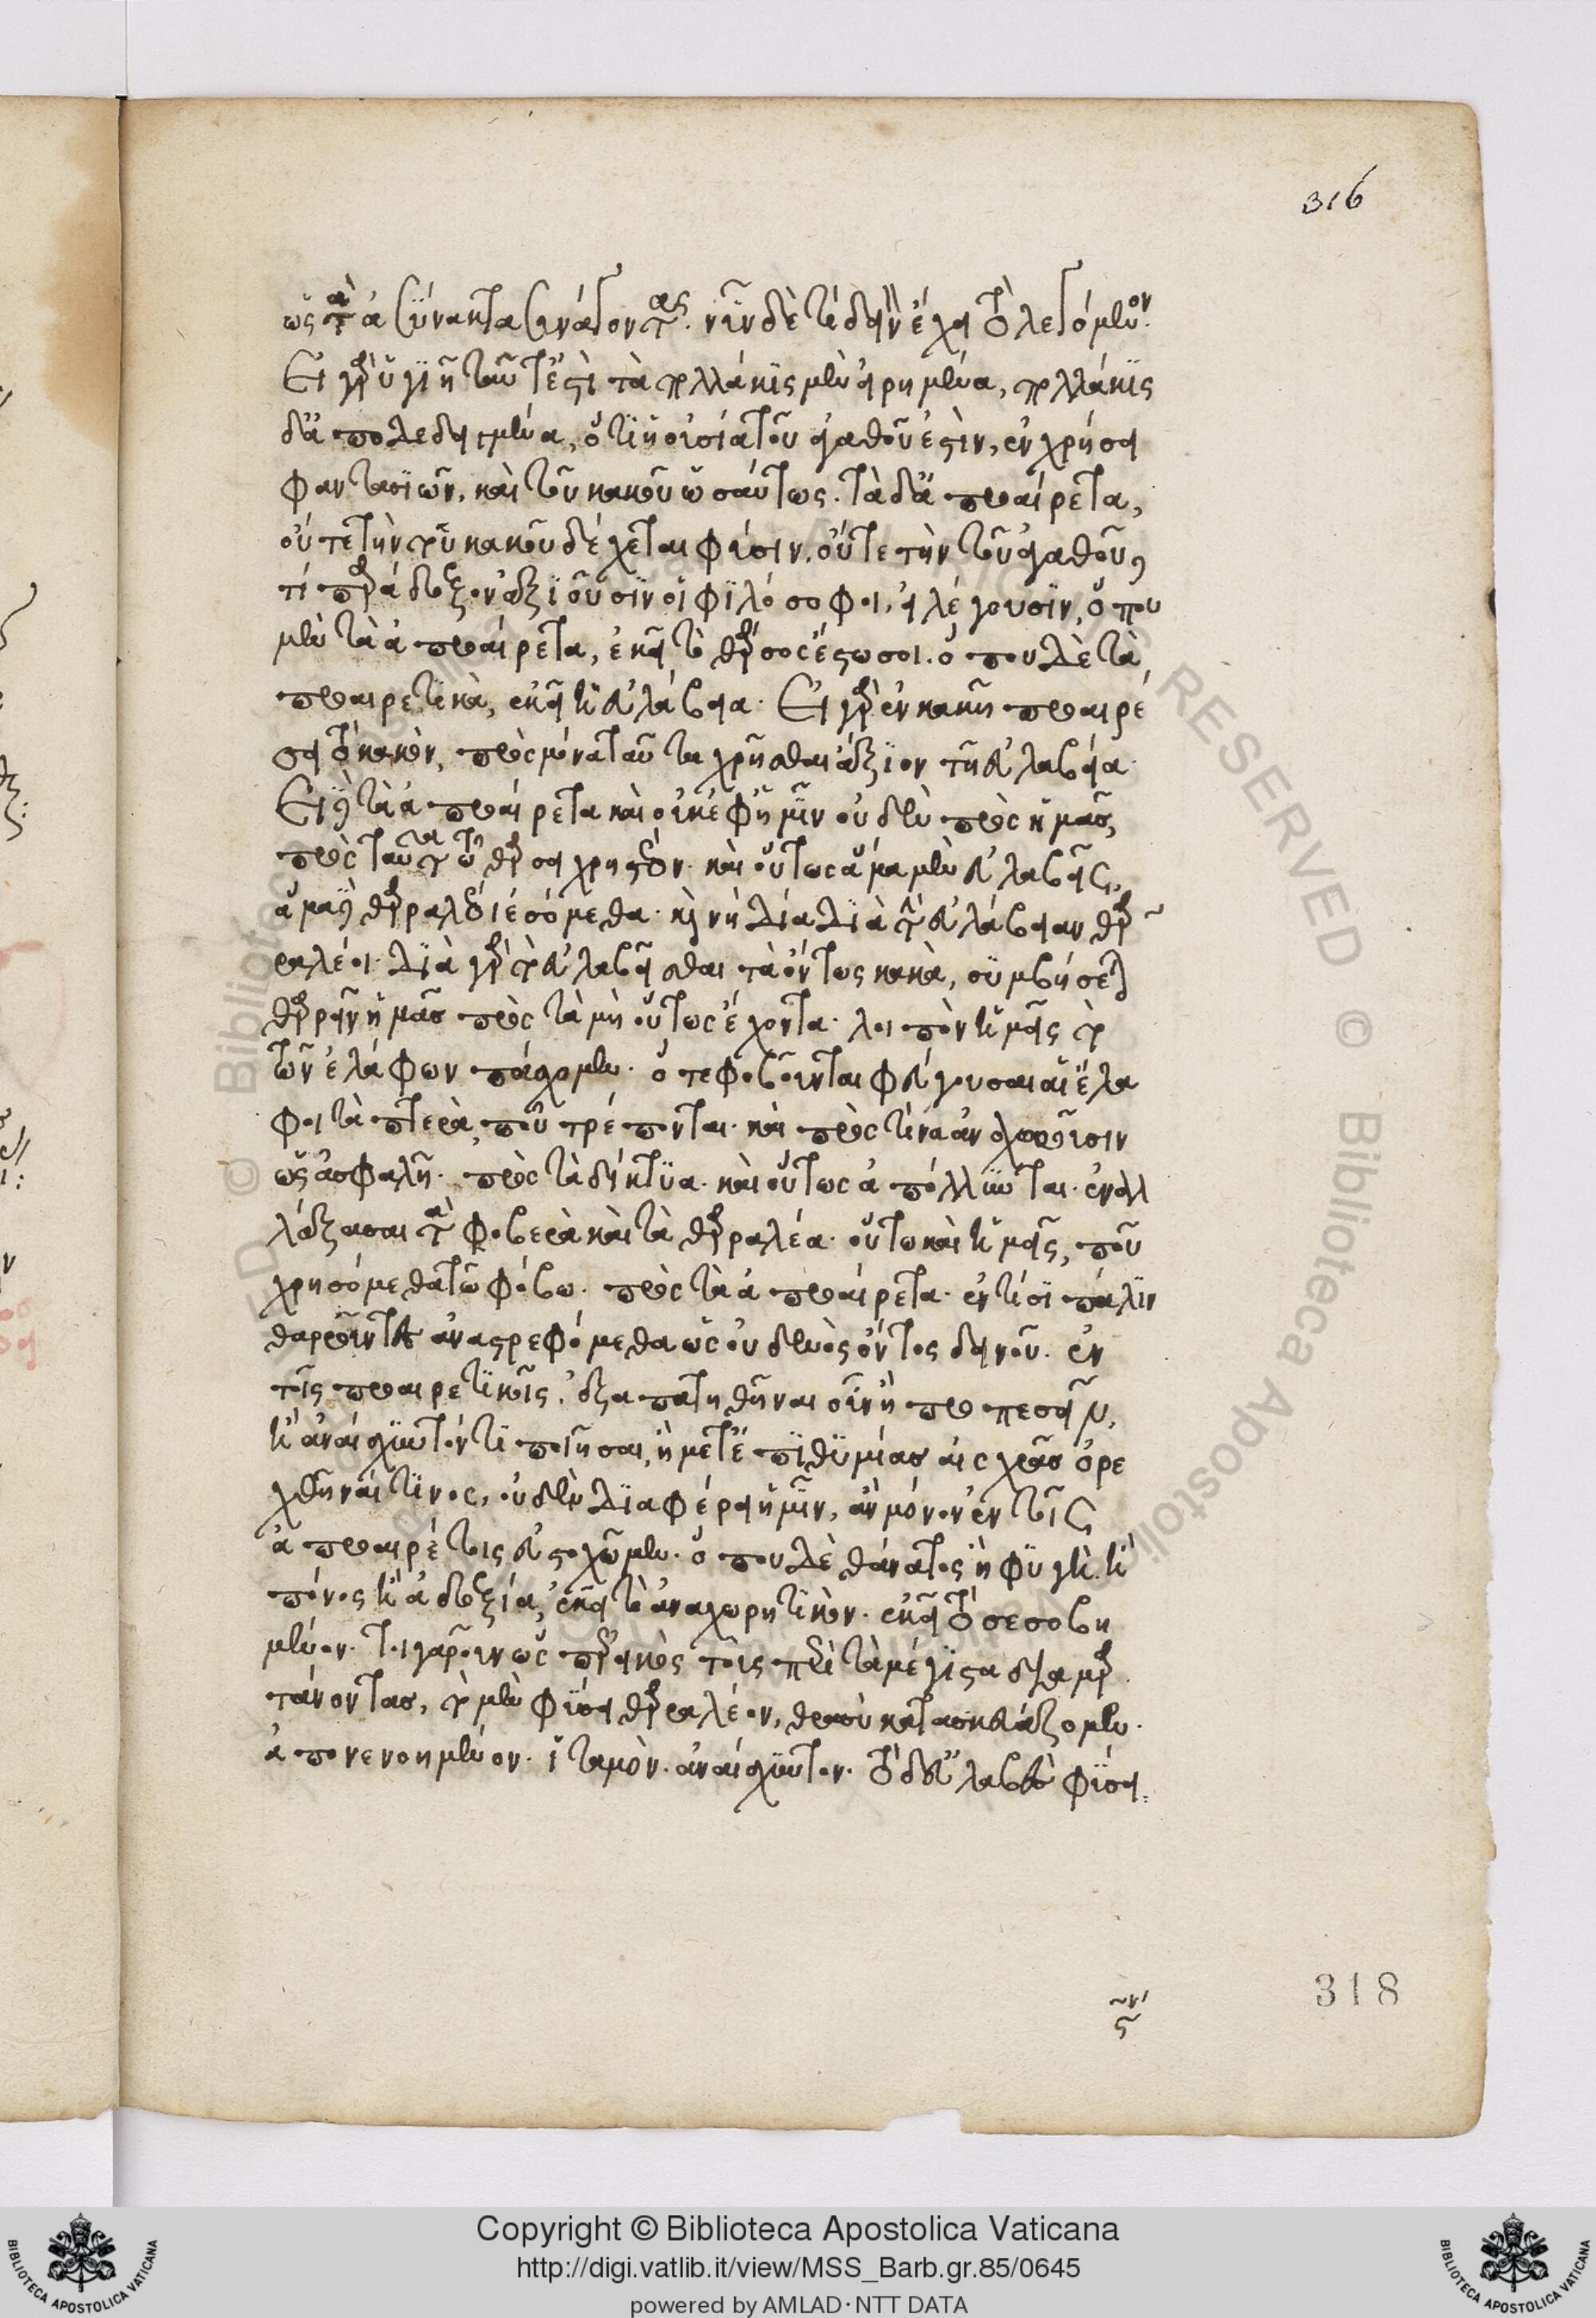 316
ὡς τὰ ἀσύνακτα συνάγοντας. νῦν δὲ τί δεινὸν ἔχει τὸ λεγόμενον.
Εἰ γὰρ ὑγιῆ ταῦτ' ἐστὶ τὰ πολλάκις μὲν εἰρημένα, πολλάκις
δ' ἀποδεδειγμένα, ὅτι ἡ οὐσία τοῦ ἀγαθοῦ ἐστὶν, ἐν χρήσει
φαντασιῶν. καὶ τοῦ κακοῦ ὡσαύτως. τὰ δ' ἀπροαίρετα,
οὔτε τὴν τοῦ κακοῦ δέχεται φύσιν. οὔτε τὴν τοῦ ἀγαθοῦ,
τί παράδοξον ἀξιοῦσιν οἱ φιλόσοφοι, εἰ λέγουσιν, ὅπου
μὲν τὰ ἀπροαίρετα, ἐκεῖ τὸ θάρσος ἔστω σοι. ὅπου δὲ τὰ
προαιρετικὰ, ἐκεῖ ἡ εὐλάβεια. Εἰ γὰρ ἐν κακῇ προαιρέ
σει τὸ κακὸν, πρὸς μόνα ταῦτα χρῆσθαι ἄξιον τῇ εὐλαβείᾳ.
Εἰ δὲ τὰ ἀπροαίρετα καὶ οὐκ ἐφ' ἡμῖν οὐδὲν πρὸς ἡμᾶς,
πρὸς ταῦτα τῷ θάρσει χρηστέον. καὶ οὕτως ἅμα μὲν εὐλαβεῖς,
ἅμα δὲ θαρραλέοι ἐσόμεθα. καὶ νὴ Δία διὰ τὴν εὐλάβειαν θαρ
ραλέοι. διὰ γὰρ τὸ εὐλαβεῖσθαι τὰ ὄντως κακὰ, συμβήσεται
θαρρεῖν ἡμᾶς πρὸς τὰ μὴ οὕτως ἔχοντα. λοιπὸν ἡμεῖς τὸ
τῶν ἐλάφων πάσχομεν. ὅτε φοβοῦνται φεύγουσαι αἱ ἔλα
φοι τὰ πτερὰ, ποῦ τρέπονται. καὶ πρὸς τίνα ἀναχωροῦσιν
ὡς ἀσφαλῆ. πρὸς τὰ δίκτυα. καὶ οὕτως ἀπόλλυνται. ἐναλ
λάξασαι τὰ φοβερὰ καὶ τὰ θαρραλέα. οὕτω καὶ ἡμεῖς, ποῦ
χρησόμεθα τῷ φόβῳ. πρὸς τὰ ἀπροαίρετα. ἐν τίσι πάλιν
θαρροῦντες ἀναστρεφόμεθα ὡς οὐδενὸς ὄντος δεινοῦ. ἐν
τοῖς προαιρετικοῖς. ἐξαπατηθῆναι οὖν ἢ προπεσεῖν,
ἢ ἀναίσχυντόν τι ποιῆσαι, ἢ μετ' ἐπιθυμίας αἰσχρᾶς ὀρε
χθῆναί τινος, οὐδὲν διαφέρει ἡμῖν, ἂν μόνον ἐν τοῖς
ἀπροαιρέτοις εὐστοχῶμεν. ὅπου δὲ θάνατος ἢ φυγὴ. ἢ
πόνος ἢ ἀδοξία, ἐκεῖ τὸ ἀναχωρητικὸν. ἐκεῖ τὸ σεσοβη
μένον. τοιγαροῦν ὡς παρεικὸς τοῖς περὶ τὰ μέγιστα διαμαρ
τάνοντας, τὸ μὲν φύσει θαρραλέον, θρασὺ κατασκευάζομεν.
ἀπονενοημένον. ἰταμὸν. ἀναίσχυντον. τὸ δ' εὐλαβὲς φύσει
318
Copyright © Biblioteca Apostolica Vaticana
http://digi.vatlib.it/view/MSS_Barb.gr.85/0645
powered by AMLAD · NTT DATA